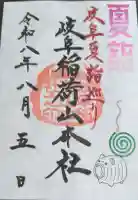 夏詣
岐阜夏詣巡り
岐阜稲荷山本社
令和八年八月五日